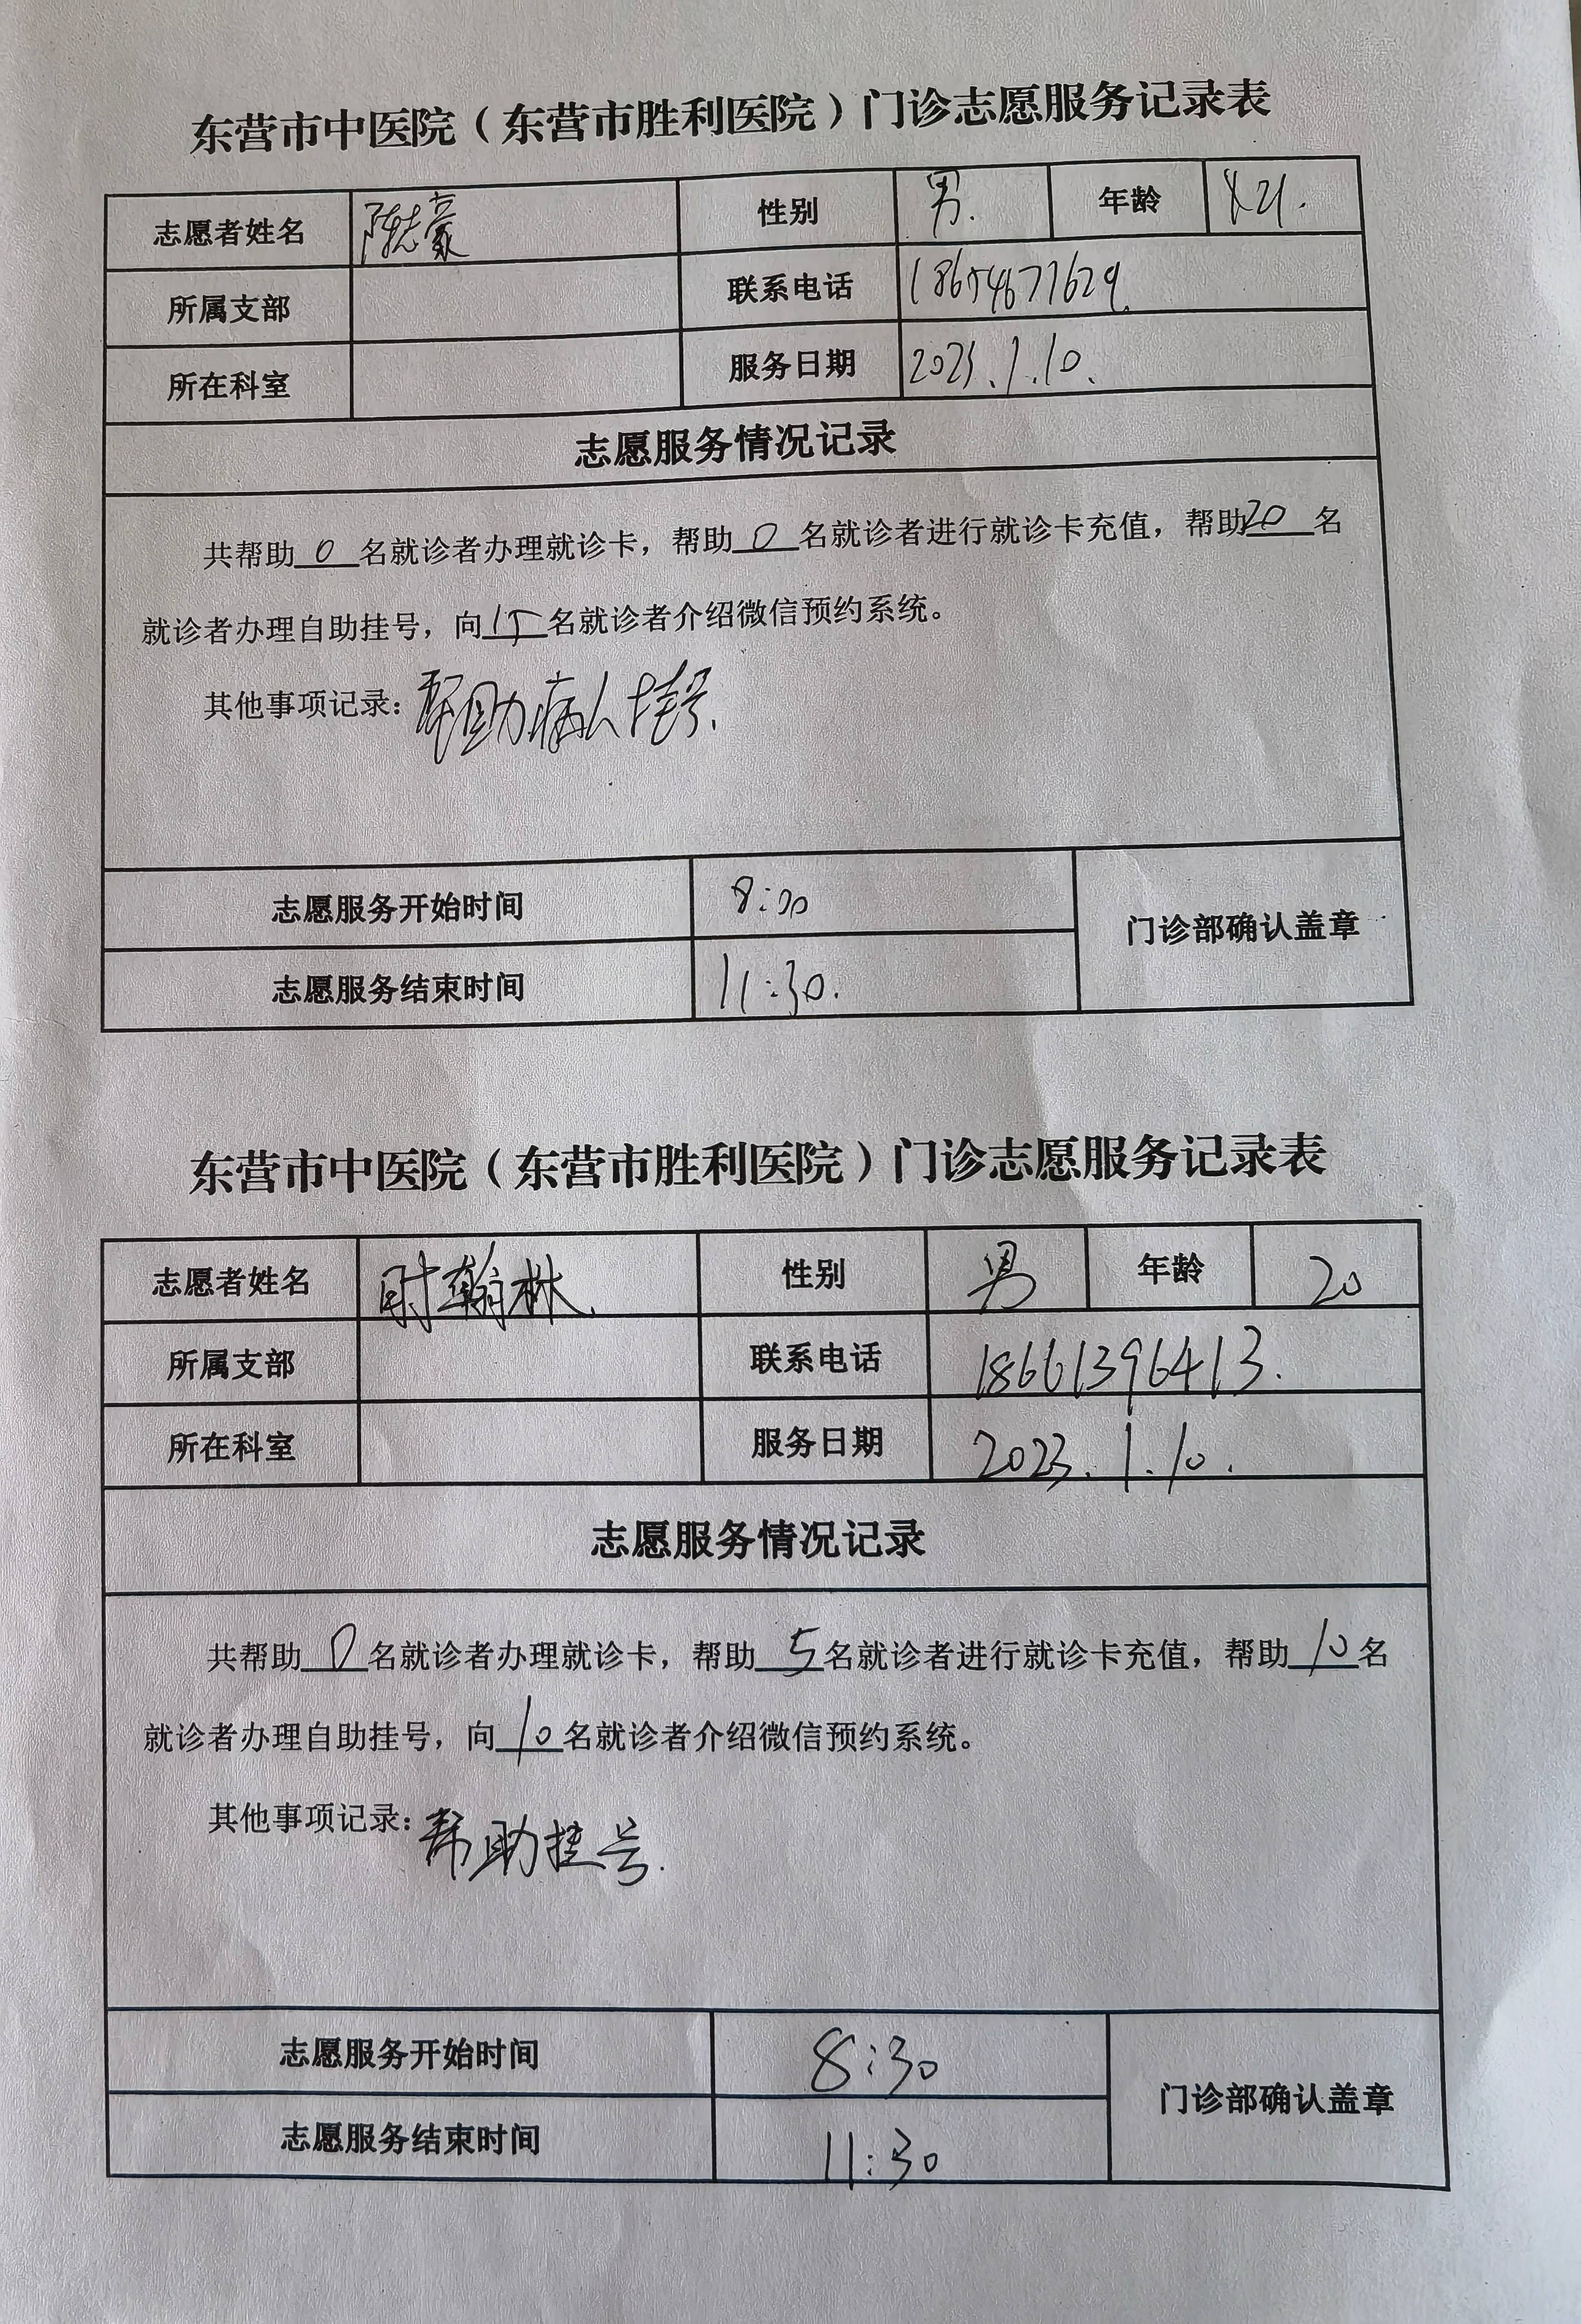 东营市中医院（东营市胜利医院）门诊志愿服务记录表
志愿者姓名 陈志豪 性别 男. 年龄 21.
所属支部 联系电话 18654677629.
所在科室 服务日期 2023.1.10.
志愿服务情况记录
共帮助0名就诊者办理就诊卡，帮助0名就诊者进行就诊卡充值，帮助20名
就诊者办理自助挂号，向15名就诊者介绍微信预约系统。
其他事项记录：帮助病人挂号.
志愿服务开始时间 8:00 门诊部确认盖章
志愿服务结束时间 11:30.
东营市中医院（东营市胜利医院）门诊志愿服务记录表
志愿者姓名 时翰林. 性别 男 年龄 20
所属支部 联系电话 18661396413.
所在科室 服务日期 2023.1.10.
志愿服务情况记录
共帮助0名就诊者办理就诊卡，帮助5名就诊者进行就诊卡充值，帮助10名
就诊者办理自助挂号，向10名就诊者介绍微信预约系统。
其他事项记录：帮助挂号.
志愿服务开始时间 8:30 门诊部确认盖章
志愿服务结束时间 11:30